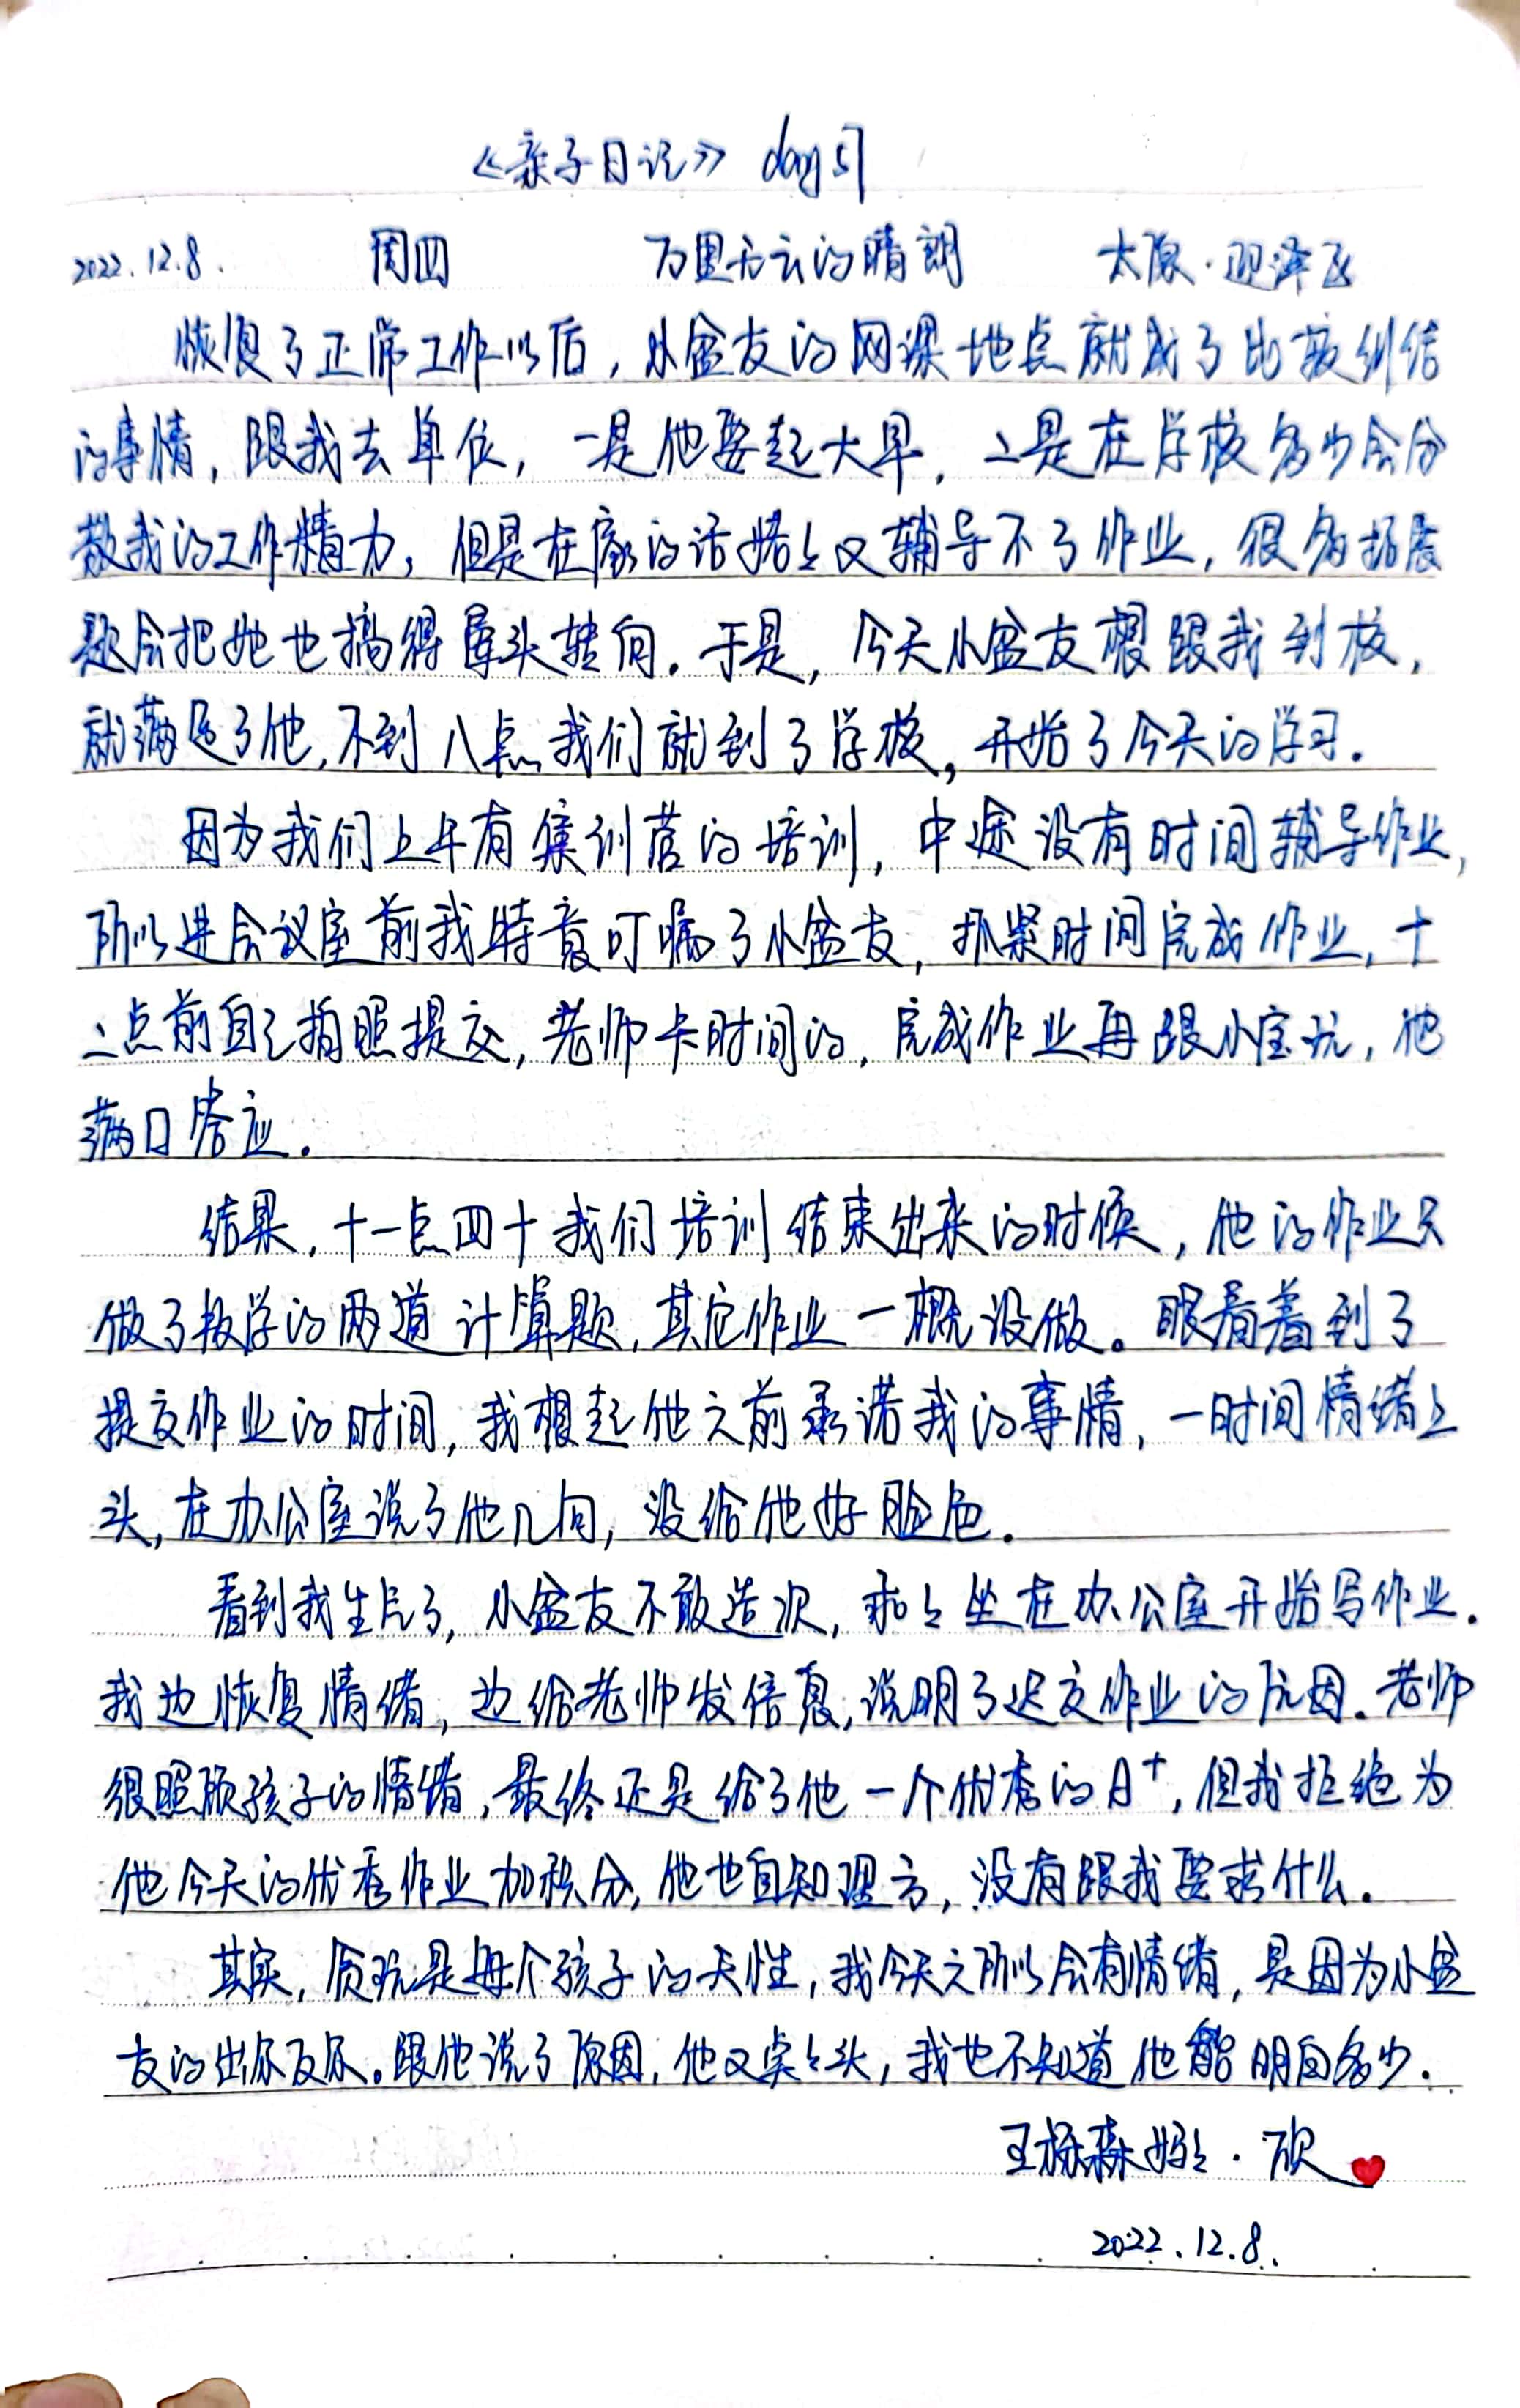 《亲子日记》 day 57
2022.12.8. 周四 万里无云的晴朗 太原·迎泽区
恢复了正常工作以后，小盆友的网课地点就成了比较纠结
的事情，跟我去单位，一是他要起大早，二是在学校多少会分
散我的工作精力，但是在家的话婼々又辅导不了作业，很多拓展
题会把她也搞得晕头转向。于是，今天小盆友想跟我到校，
就满足了他，不到八点我们就到了学校，开始了今天的学习.
因为我们上午有集训营的培训，中途没有时间辅导作业，
所以进会议室前我特意叮嘱了小盆友，抓紧时间完成作业，十
二点前自己拍照提交，老师卡时间的，完成作业再跟小宝玩，他
满口答应.
结果，十一点四十我们培训结束出来的时候，他的作业只
做了数学的两道计算题，其它作业一概没做。眼看着到了
提交作业的时间，我想起他之前承诺我的事情，一时间情绪上
头，在办公室说了他几句，没给他好脸色.
看到我生气了，小盆友不敢造次，乖々坐在办公室开始写作业.
我边恢复情绪，边给老师发信息，说明了迟交作业的原因. 老师
很照顾孩子的情绪，最终还是给了他一个优秀的A+，但我拒绝为
他今天的优秀作业加积分，他也自知理亏，没有跟我要求什么.
其实，贪玩是每个孩子的天性，我今天之所以会有情绪，是因为小盆
友的出尔反尔。跟他说了原因，他又点々头，我也不知道他能明白多少.
王栎森妈々·欣
2022.12.8.